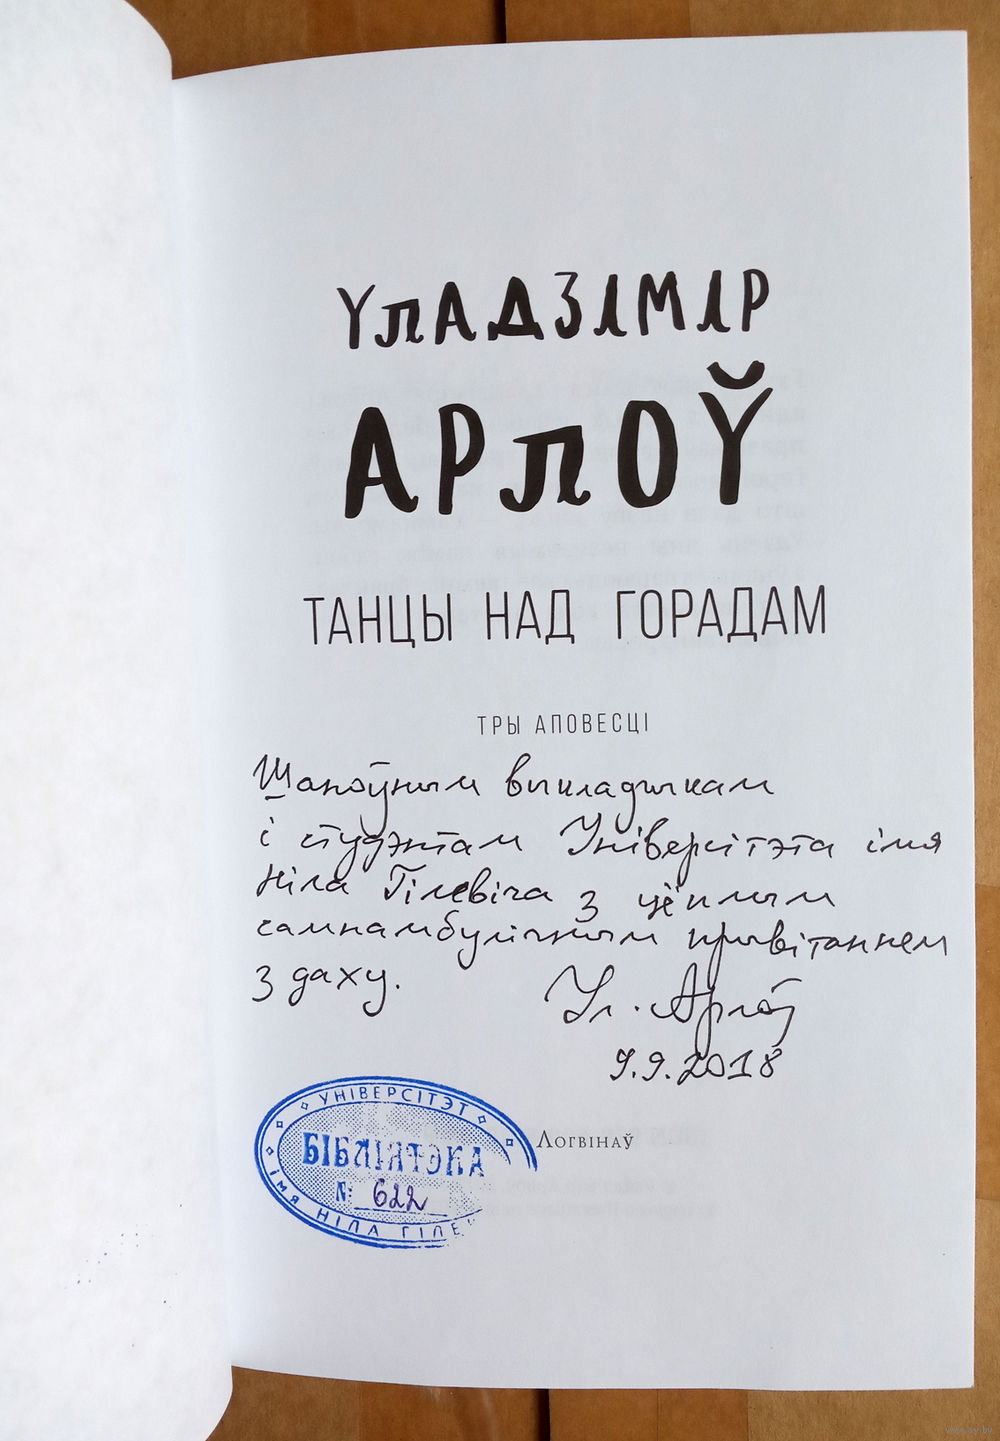 УЛАДЗІМІР
АРЛОЎ
ТАНЦЫ НАД ГОРАДАМ
ТРЫ АПОВЕСЦІ
Шаноўным выкладчыкам
і студэнтам Універсітэта імя
Ніла Гілевіча з цёплым
самнамбулічным прывітаннем
з даху.
Ул. Арлоў
9.9.2018
УНІВЕРСІТЭТ
БІБЛІЯТЭКА
№ 622
ІМЯ НІЛА ГІЛЕ
Логвінаў